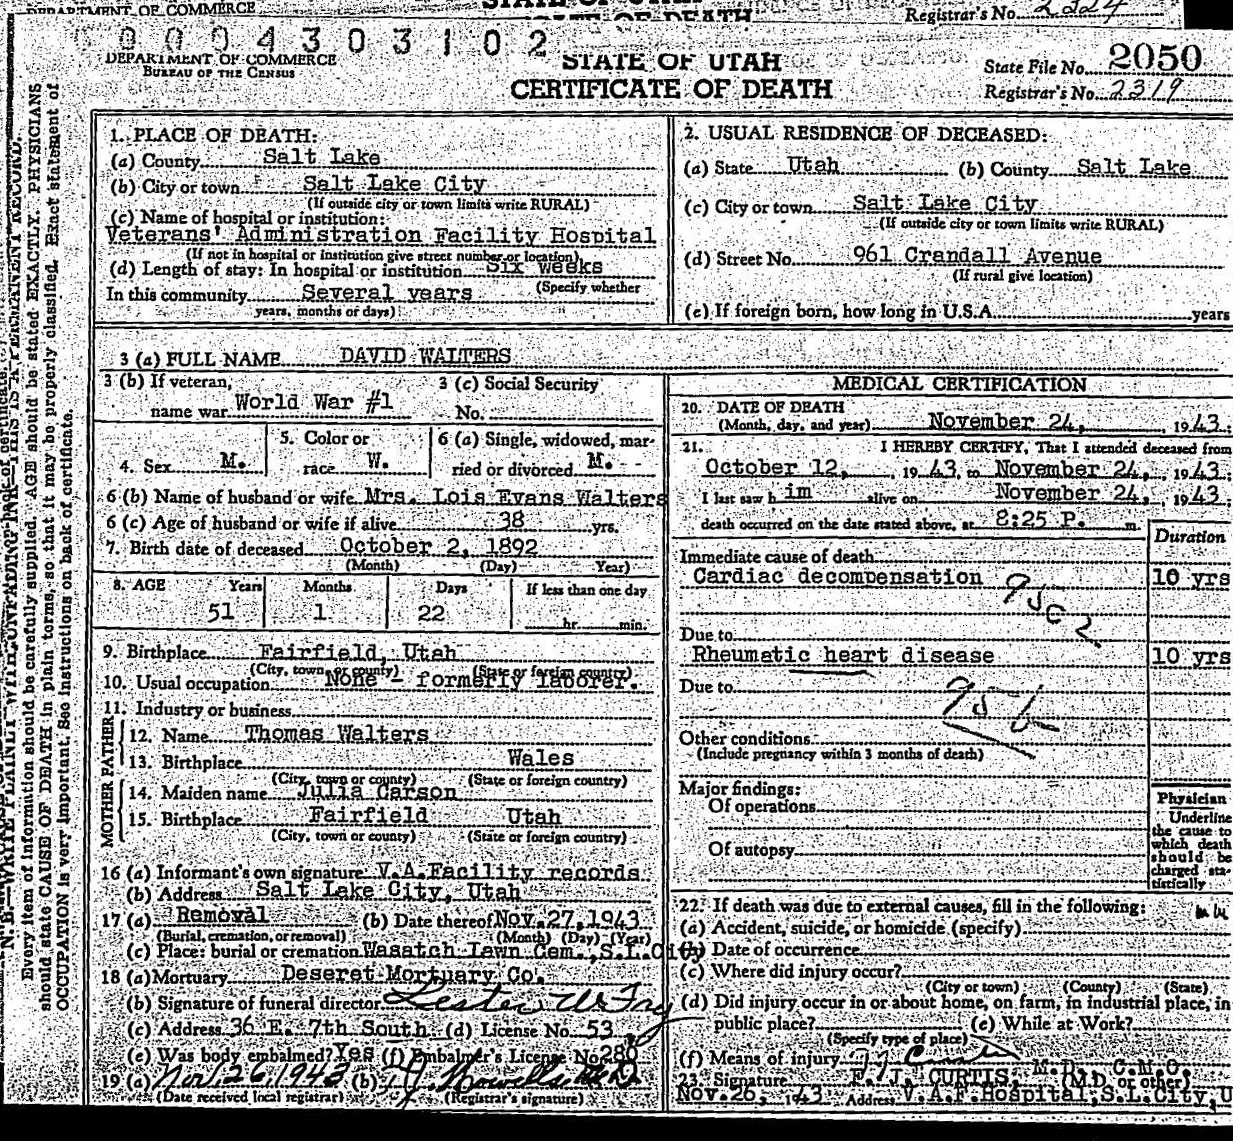 DEPARTMENT OF COMMERCE
STATE OF UTAH
CERTIFICATE OF DEATH
Registrar's No. 2324
0004303102
DEPARTMENT OF COMMERCE
BUREAU OF THE CENSUS
STATE OF UTAH
CERTIFICATE OF DEATH
State File No. 2050
Registrar's No. 2319
N. B.—WRITE PLAINLY WITH UNFADING INK—THIS IS A PERMANENT RECORD.
Every item of information should be carefully supplied. AGE should be stated EXACTLY. PHYSICIANS
should state CAUSE OF DEATH in plain terms, so that it may be properly classified. Exact statement of
OCCUPATION is very important. See instructions on back of certificate.
1. PLACE OF DEATH:
(a) County Salt Lake
(b) City or town Salt Lake City
(If outside city or town limits write RURAL)
(c) Name of hospital or institution:
Veterans' Administration Facility Hospital
(If not in hospital or institution give street number or location)
(d) Length of stay: In hospital or institution Six weeks
(Specify whether
In this community Several years
years, months or days)
2. USUAL RESIDENCE OF DECEASED:
(a) State Utah (b) County Salt Lake
(c) City or town Salt Lake City
(If outside city or town limits write RURAL)
(d) Street No. 961 Crandall Avenue
(If rural give location)
(e) If foreign born, how long in U.S.A. years
3 (a) FULL NAME DAVID WALTERS
3 (b) If veteran,
name war World War #1
3 (c) Social Security
No.
4. Sex M.
5. Color or
race W.
6 (a) Single, widowed, mar-
ried or divorced M.
6 (b) Name of husband or wife Mrs. Lois Evans Walters
6 (c) Age of husband or wife if alive 38 yrs.
7. Birth date of deceased October 2, 1892
(Month) (Day) Year)
8. AGE Years Months Days If less than one day
51 1 22 hr. min.
9. Birthplace Fairfield, Utah
(City, town or county) (State or foreign country)
10. Usual occupation None - formerly laborer.
11. Industry or business
FATHER
12. Name Thomas Walters
13. Birthplace Wales
(City, town or county) (State or foreign country)
MOTHER
14. Maiden name Julia Carson
15. Birthplace Fairfield Utah
(City, town or county) (State or foreign country)
16 (a) Informant's own signature V.A.Facility records
(b) Address Salt Lake City, Utah
17 (a) Removal (b) Date thereof Nov.27,1943
(Burial, cremation, or removal) (Month) (Day) (Year)
(c) Place: burial or cremation Wasatch Lawn Cem., S.L.City
18 (a) Mortuary Deseret Mortuary Co.
(b) Signature of funeral director
(c) Address 36 E. 7th South (d) License No. 53
(e) Was body embalmed? Yes (f) Embalmer's License No. 280
19 (a) Nov. 26, 1943 (b)
(Date received local registrar) (Registrar's signature)
MEDICAL CERTIFICATION
20. DATE OF DEATH
(Month, day, and year) November 24, 1943.
21. I HEREBY CERTIFY, That I attended deceased from
October 12, 1943, to November 24, 1943.
I last saw him alive on November 24, 1943.
death occurred on the date stated above, at 8:25 P. m.
Duration
Immediate cause of death
Cardiac decompensation 10 yrs
95c2
Due to
Rheumatic heart disease 10 yrs
Due to
95b
Other conditions
(Include pregnancy within 3 months of death)
Major findings:
Of operations
Of autopsy
Physician
Underline
the cause to
which death
should be
charged sta-
tistically
22. If death was due to external causes, fill in the following:
(a) Accident, suicide, or homicide (specify)
(b) Date of occurrence
(c) Where did injury occur?
(City or town) (County) (State)
(d) Did injury occur in or about home, on farm, in industrial place, in
public place? (e) While at Work?
(Specify type of place)
(f) Means of injury
23. Signature F. J. CURTIS, M.D., C.M.O.
(M.D. or other)
Nov.26, 1943 Address V.A.F.Hospital,S.L.City,U